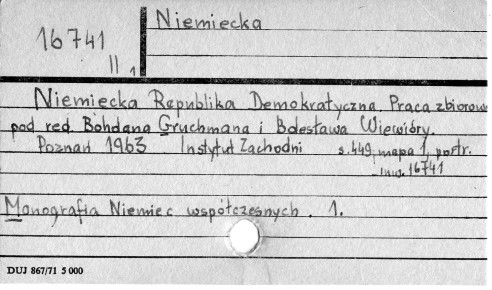 16741
II 1
Niemiecka
Niemiecka Republika Demokratyczna. Praca zbiorowa
pod red. Bohdana Gruchmana i Bolesława Wiewióry.
Poznań 1963 Instytut Zachodni s. 449, mapa 1, portr.
inw. 16741
Monografia Niemiec współczesnych. 1.
DUJ 867/71 5 000